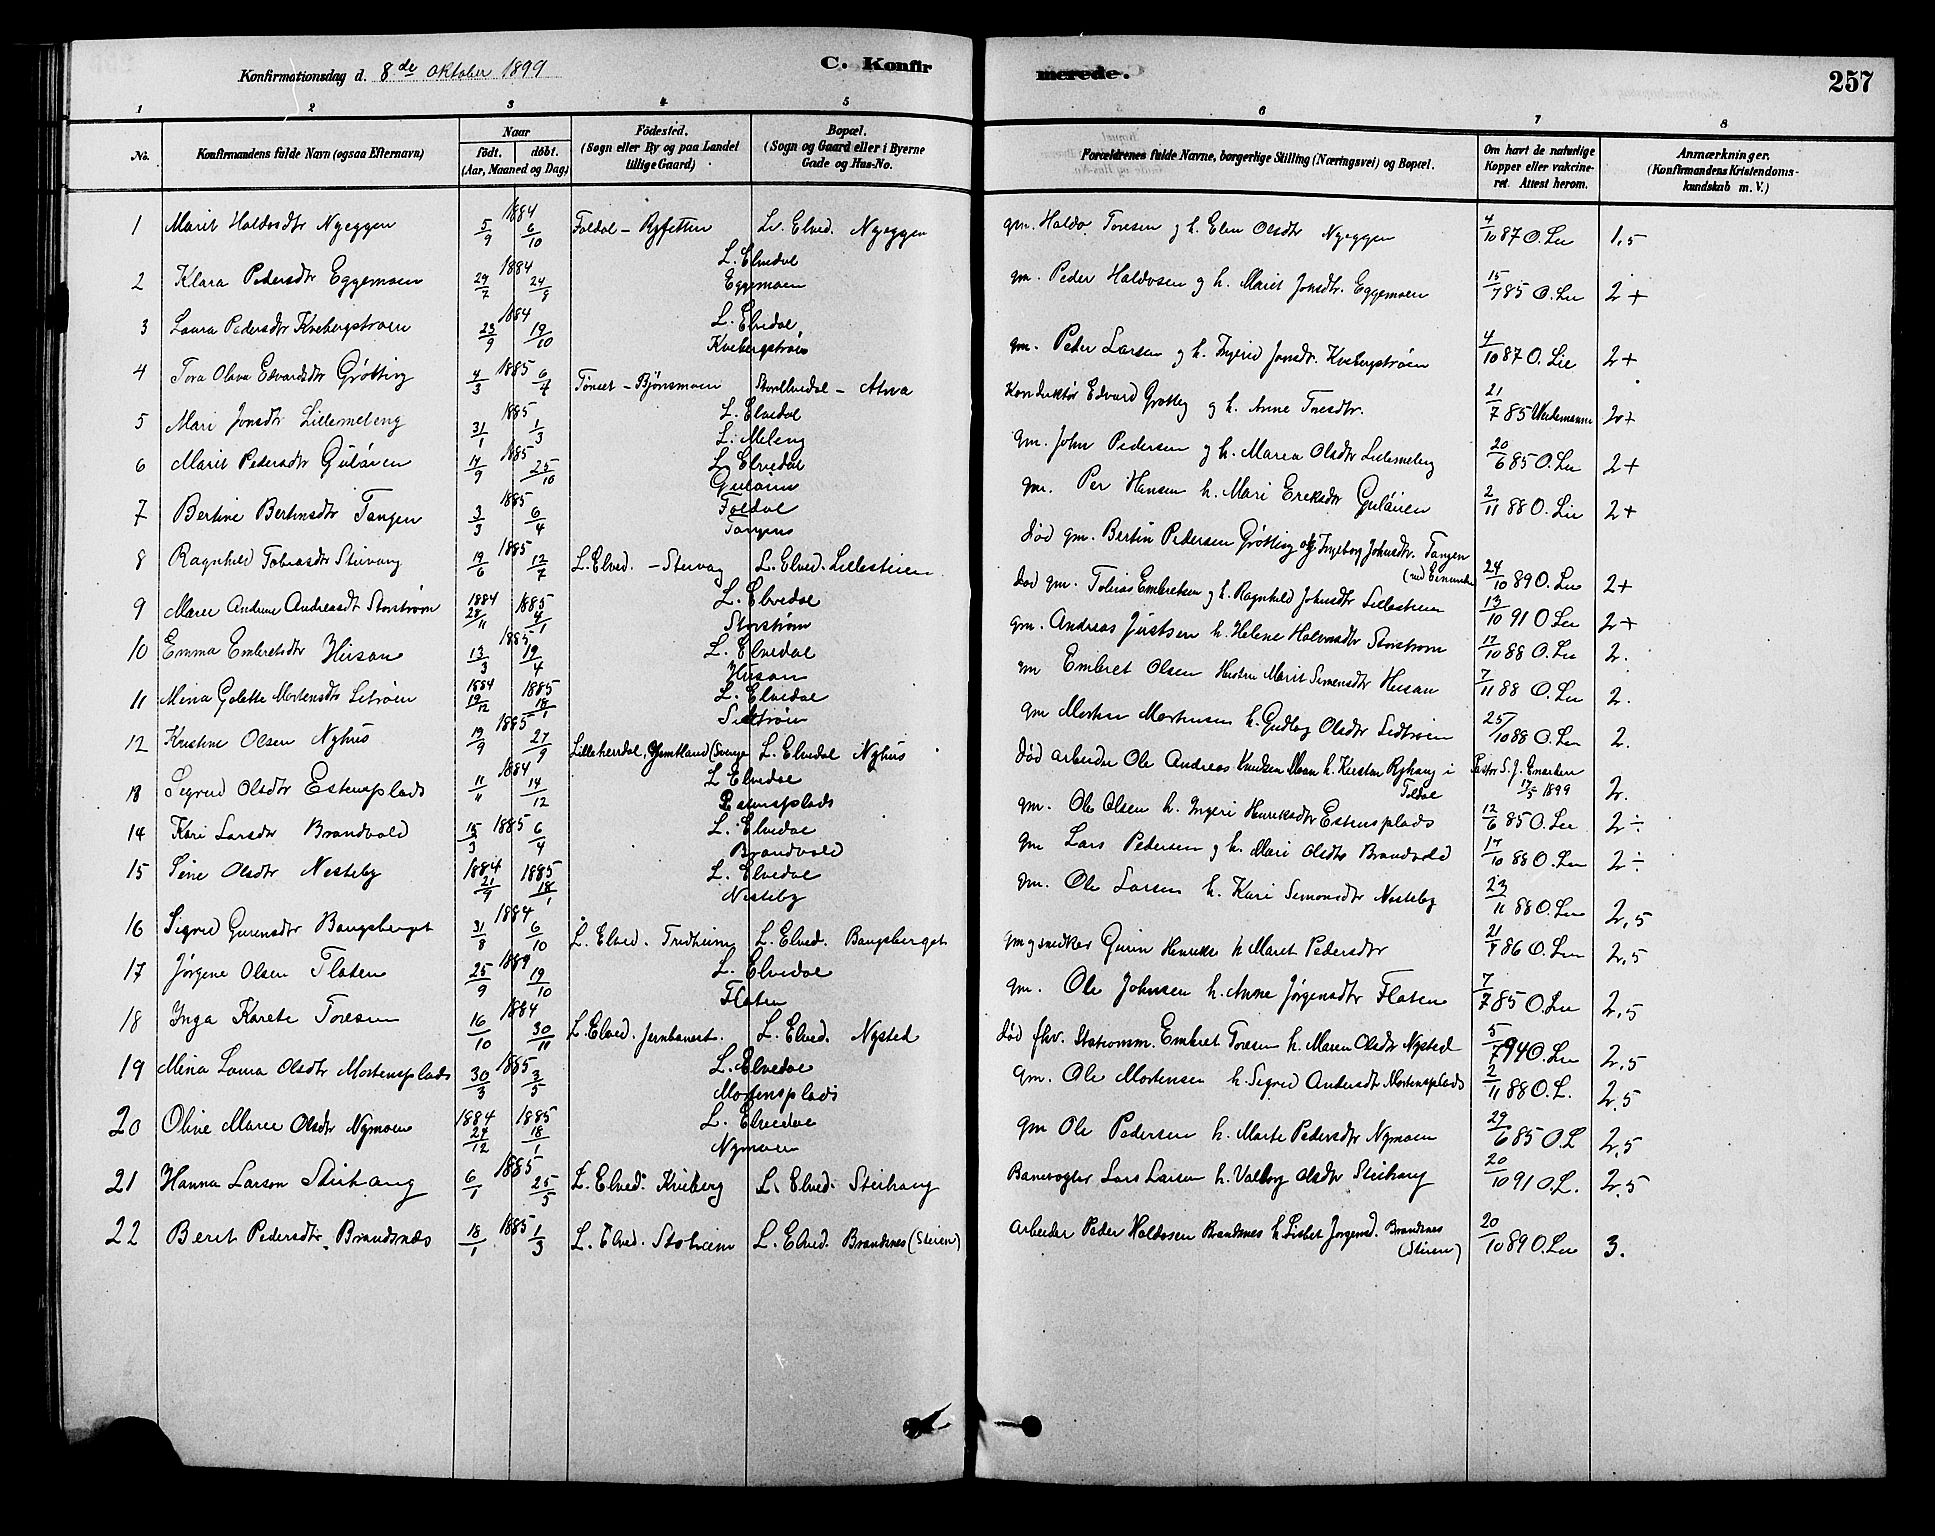 Konfirmationsdag d. 8de Oktober 1899 C. Konfirmerede. 257
1 2 3 4 5 6 7 8
No. Konfirmandens fulde Navn (ogsaa Efternavn) Naar født. døbt. (Aar, Maaned og Dag) Födested. (Sogn eller By og paa Landet tillige Gaard) Bopæl. (Sogn og Gaard eller i Byerne Gade og Hus-No. Forældrenes fulde Navne, borgerlige Stilling (Næringsvei) og Bopæl. Om havt de naturlige Kopper eller vakcineret. Attest herom. Anmærkninger. (Konfirmandens Kristendomskundskab m. V.)
1 Marit Haldosdtr Nyeggen 1884 5/9 6/10 Foldal - L. Elved. Nyeggen gm. Haldo Toresen og h. Elen Olsdtr Nyeggen 4/10 87 O. Lie 1,5
2 Klara Pedersdtr Eggemoen 1884 29/7 24/8 L. Elvedal Eggemoen gm. Peder Haldosen og h. Marit Jonsdtr. Eggemoen 15/7 85 O. Lie 2+
3 Laura Pedersdtr Kvebergstrøen 1884 23/9 19/10 L. Elvedal, Kvebergstrøen gm. Peder Larsen og h. Ingrid Jonsdr. Kvebergstrøen 4/10 87 O. Lie 2+
4 Tora Olava Edvardsdtr Grøtting 1885 4/3 6/4 Tønset - Bjørnsmoen Storelvedal - Atna Konduktør Edvard Grøtting og h. Anne Toresdtr. 21/7 85 Weidemann 2+
5 Mari Jonsdtr Lillemeleng 1885 31/1 1/3 L. Elvedal L. Meleng gm. John Pedersen og h. Maren Olsdtr Lillemeleng 20/6 85 O. Lie 2+
6 Marit Pedersdtr Guløien 1885 14/9 25/10 L. Elvedal Guløien gm. Per Hansen h. Mari Eriksdtr Guløien 2/11 88 O. Lie 2+
7 Bertine Bertinsdtr Tangen 1885 3/3 6/4 Foldal Tangen død gm. Bertin Pedersen Grøtting og Ingeborg Johnsdtr. Tangen 24/10 89 O. Lie 2+
8 Ragnhild Tobiasdtr 1885 19/6 12/7 L. Elved. - L. Elved. Lillesteien død gm. Tobias Embretsen og h. Ragnhild Johnsdtr Lillesteien 13/10 91 O Lie 2+
9 Maren Andrine Andreasdt Storstrøm 1884 28/11 1885 4/1 L. Elvedal Storstrøm gm. Andreas Justsen h. Helene Halvorsdtr Storstrøm 17/10 88 O. Lie 2.
10 Emma Embretsdtr Husan 1885 13/3 19/4 L. Elvedal Husan gm Embret Olsen Hustru Marit Simensdtr Husan 7/11 88 O. Lie 2.
11 Mina Galette Mortensdtr Letrøen 1884 19/12 1885 18/1 L. Elvedal gm Morten Mortensen h. Gudlaug Olsdtr 25/10 88 O. Lie 2.
12 Kristine Olsen Nyhus 1885 19/9 27/9 Lilleherrdal, Jemtland (Sverige L. Elvedal Nyhus død arbeider Ole Andreas Knudsen Moan h. Kirsten Ryhaug i Foldal Pastor S. J. 17/5 1899 2.
13 Sigrid Olsdtr Estensplads 1884 11/11 14/12 L Elvedal Estensplads gm. Ole Olsen h. Ingeri Henriksdtr Estensplads 12/6 85 O. Lie 2÷
14 Kari Larsdtr Brandvold 1885 15/3 6/4 L. Elvedal Brandvold gm Lars Pedersen og h. Mari Olsdtr Brandvold 17/10 88 O. Lie 2÷
15 Sine Olsdtr Nesteby 1884 21/9 1885 18/1 L. Elvedal Nesteby gm. Ole Larsen h. Kari Simonsdtr Nesteby 23/11 88 O. Lie 2,5
16 Sigrid Gurensdtr Baugsberget 1884 31/8 6/10 L. Elved. Tredheim L. Elved. Baugsberget gm og snedker Henriks h Maret Pedersdtr 21/7 86 O. Lie 2,5
17 Jørgine Olsen Flaten 1889 25/9 19/10 L. Elvedal Flaten gm. Ole Johnsen h. Anne Jørgensdtr Flaten 7/7 85 O. Lie 2,5
18 Inga Karete Toresen 1884 16/10 30/11 L. Elved. Jernbanest. L. Elved. Nysted død fhv. Stationsm. Embret Toresen h. Maren Olsdtr Nysted 5/7 94 O. Lie 2,5
19 Mina Laura Olsdtr Mortensplads 1885 30/3 3/5 L. Elvedal Mortensplads gm. Ole Mortensen h. Sigrid Andersdt Mortensplads 2/11 88 O. L. 2,5
20 Oline Marie Olsdtr Nymoen 1884 27/12 1885 18/1 L. Elvedal Nymoen gm Ole Pedersen h. Marte Pedersdtr Nymoen 29/6 85 O. L 2,5
21 Hanna Larsen Steihaug 1885 6/1 25/5 L. Elved. Kveberg L. Elved. Steihaug Banevogter Lars Larsen h. Valborg Olsdtr Steihaug 20/10 91 O. L. 2,5
22 Berit Pedersdtr. Brandsnæs 1885 18/1 1/3 L. Elved. L. Elved. Brandsnes (Steien) Arbeider Peder Haldosen Brandsnes h. Lisbet Jørgensd. Brandsnes (Steien) 20/10 89 O. Lie 3.